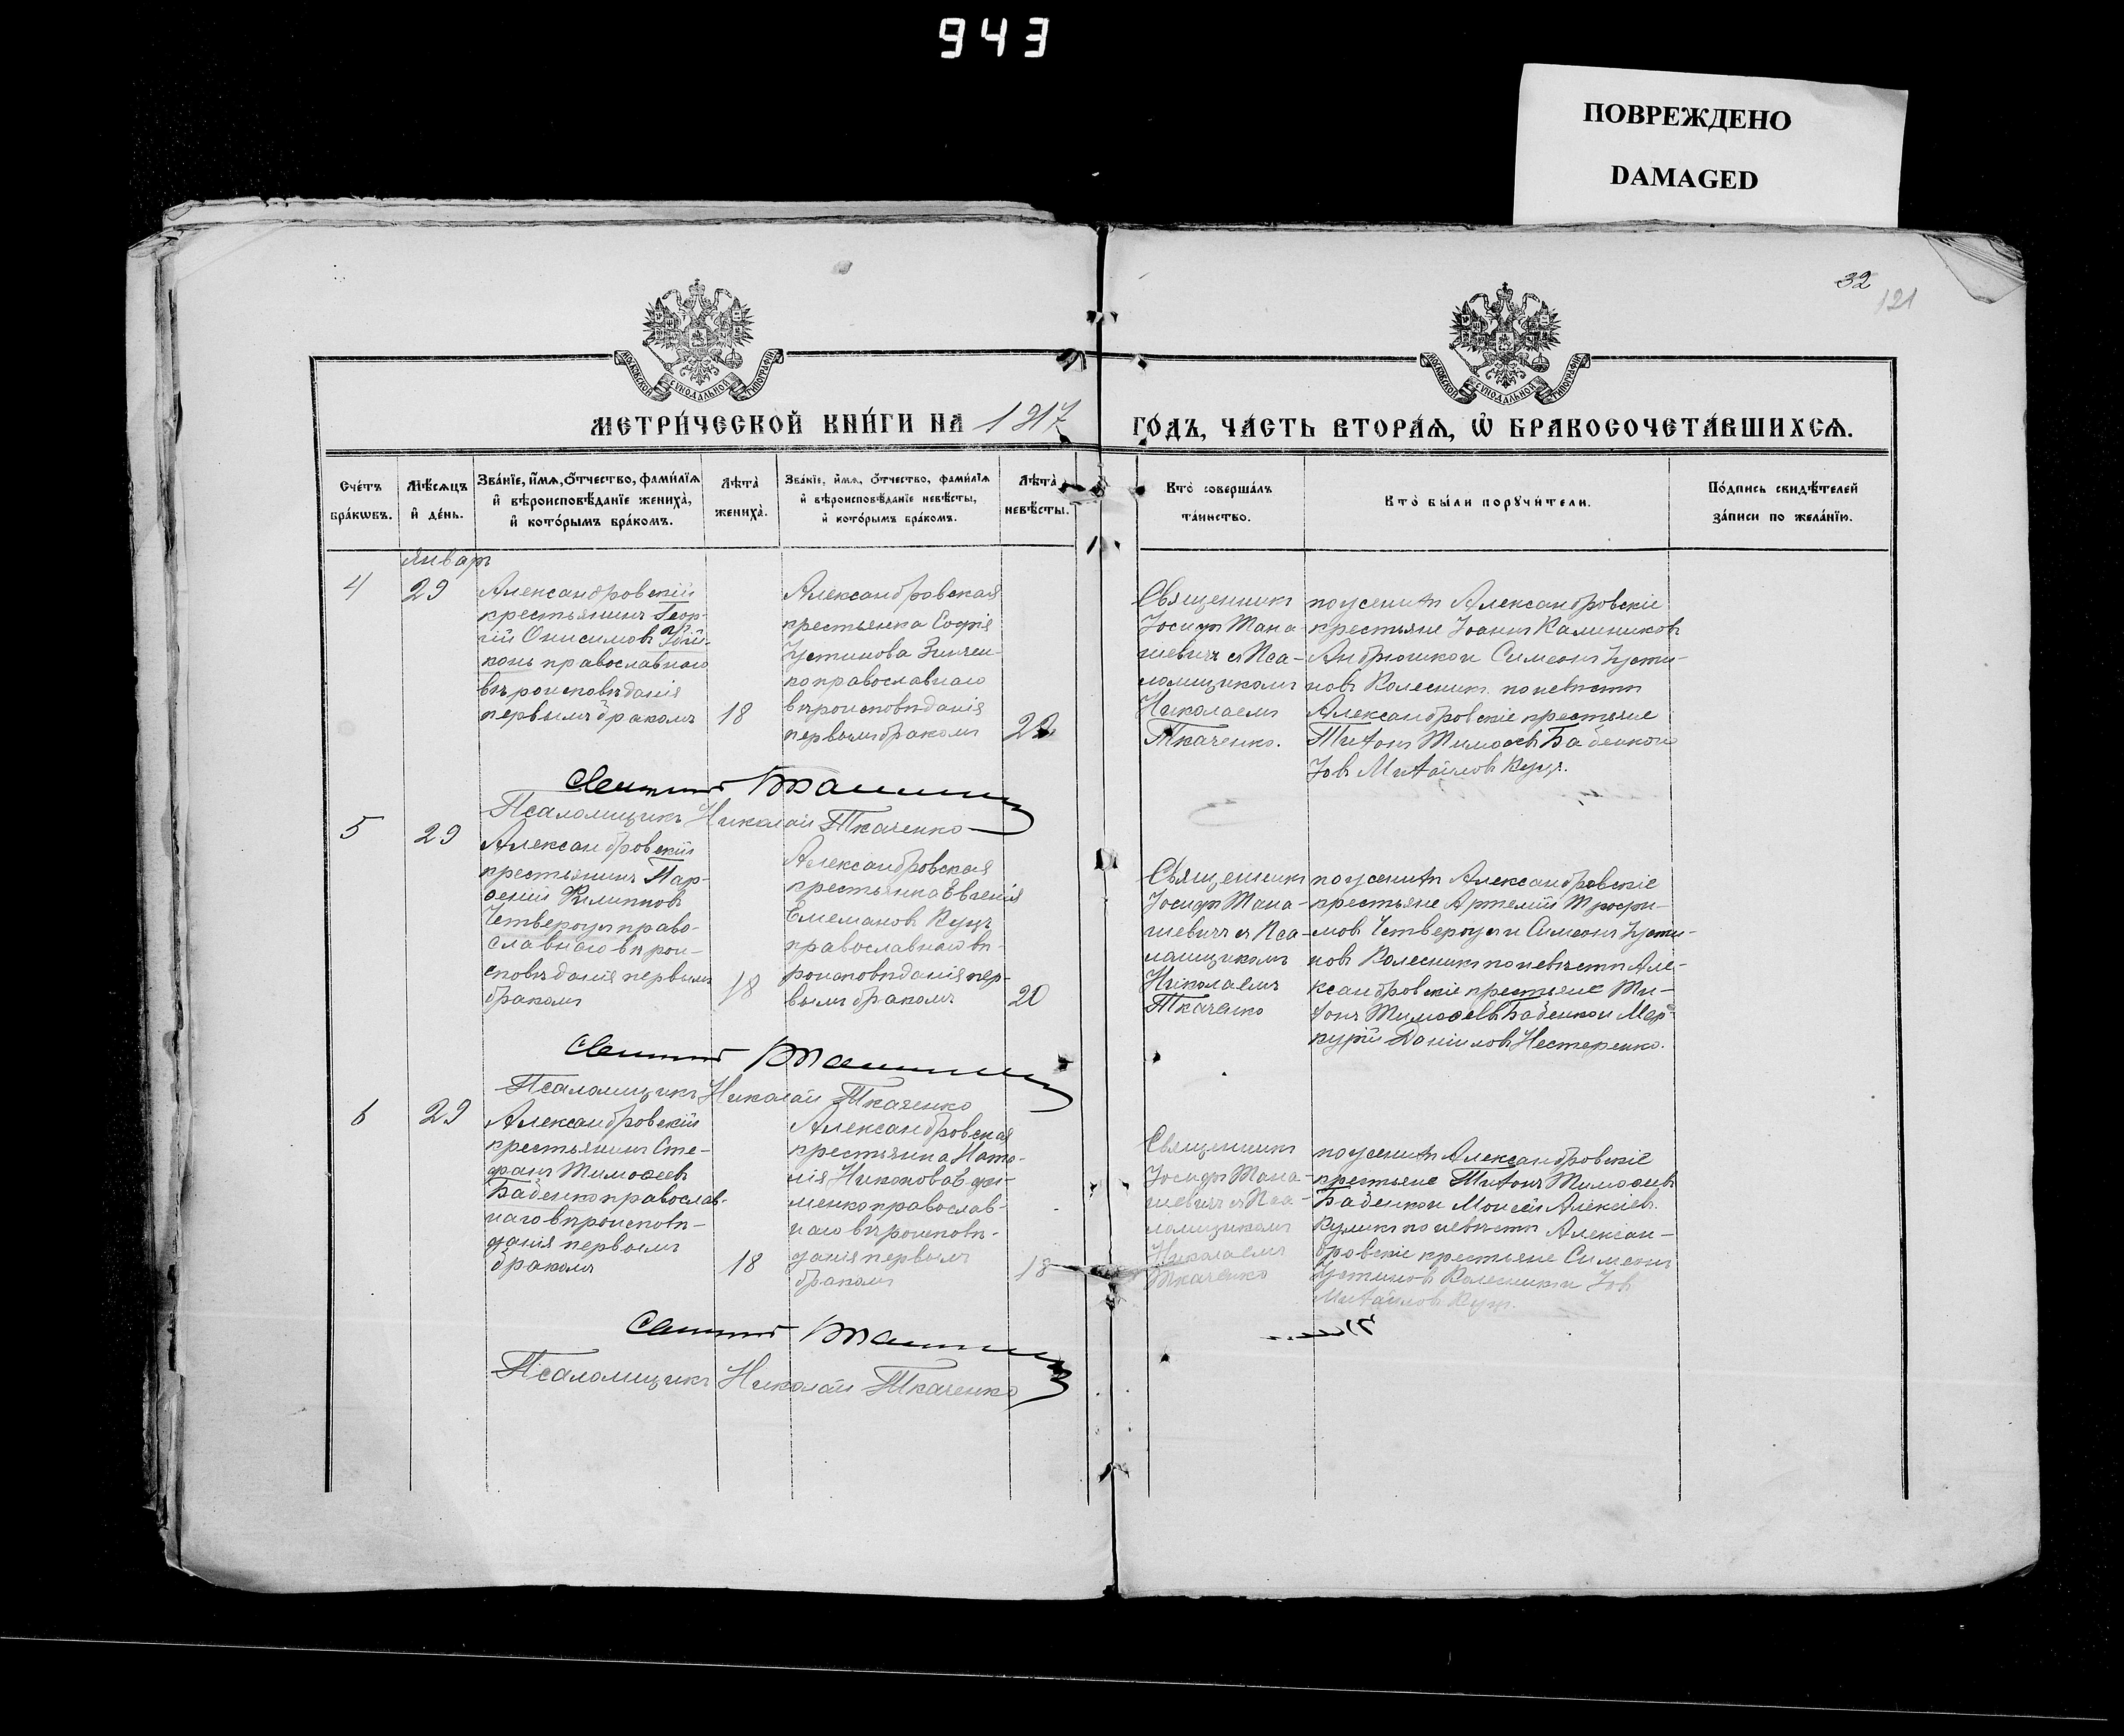 943
ПОВРЕЖДЕНО
DAMAGED
32
121
МОСКОВСКОЙ СУНОДАЛЬНОЙ ТИПОГРАФІИ
МОСКОВСКОЙ СУНОДАЛЬНОЙ ТИПОГРАФІИ
МЕТРИ́ЧЕСКОЙ КНИ́ГИ НА 1917
ГО́ДЪ, ЧА́СТЬ ВТОРА́Ѧ, Ѡ҆ БРАКОСОЧЕТА́ВШИХСѦ.
Сче́тъ
бра́кѡвъ.
Мѣ́сѧцъ
и҆ де́нь.
Зва́нїе, и҆́мѧ, ѻ҆́тчество, фами́лїѧ
и҆ вѣроисповѣ́данїе жениха̀,
и҆ кото́рымъ бра́комъ.
Лѣта̀
жениха̀.
Зва́нїе, и҆́мѧ, ѻ҆́тчество, фами́лїѧ
и҆ вѣроисповѣ́данїе невѣ́сты,
и҆ кото́рымъ бра́комъ.
Лѣта̀
невѣ́сты.
Кто̀ соверша́лъ
та́инство.
Кто̀ бы́ли порꙋчи́тели.
По́дпись свидѣ́телей
за́писи по жела́нїю.
Январь
4
29
Александровскій
крестьянинъ Геор-
гій Онисимовъ
конь православнаго
вѣроисповѣданія
первымъ бракомъ
18
Александровская
крестьянка Софія
Устинова Зинчен-
ко православнаго
вѣроисповѣданія
первымъ бракомъ
22
Священникъ
Іосифъ Мана-
шевичъ съ Пса-
ломщикомъ
Николаемъ
Ткаченко.
по женихѣ Александровскіе
крестьяне Іоаннъ Калиниковъ
Андрюшко и Симеонъ Усти-
новъ Колесникъ по невѣстѣ
Александровскіе крестьяне
Тихонъ Тимоѳеевъ Баденко и
Іовъ Михайловъ Куцъ.
Псаломщикъ Николай Ткаченко
5
29
Александровскій
крестьянинъ Пар-
ѳеній Филипповъ
Четверкуя право-
славнаго вѣрои-
сповѣданія первымъ
бракомъ
18
Александровская
крестьянка Евгенія
Куцъ
православнаго вѣ-
роисповѣданія пер-
вымъ бракомъ
20
Священникъ
Іосифъ Мана-
шевичъ съ Пса-
ломщикомъ
Николаемъ
Ткаченко
по женихѣ Александровскіе
крестьяне Артемій Трофи-
мовъ Четверкуя и Симеонъ Усти-
новъ Колесникъ по невѣстѣ Але-
ксандровскіе крестьяне Ти-
хонъ Тимоѳеевъ Баденко и Мер-
курій Даниловъ Нестеренко.
Псаломщикъ Николай Ткаченко
6
29
Александровскій
крестьянинъ Сте-
фанъ Тимоѳеевъ
Баденко православ-
наго вѣроисповѣ-
данія первымъ
бракомъ
18
Александровская
крестьянка Ната-
лія
менко православ-
наго вѣроисповѣ-
данія первымъ
бракомъ
18
Священникъ
Іосифъ Мана-
шевичъ съ Пса-
ломщикомъ
Николаемъ
Ткаченко
по женихѣ Александровскіе
крестьяне Тихонъ Тимоѳеевъ
Баденко и Моисей Алексіевъ
Куликъ по невѣстѣ Алексан-
дровскіе крестьяне Симеонъ
Устиновъ Колесникъ и Іовъ
Михайловъ Куцъ.
Псаломщикъ Николай Ткаченко